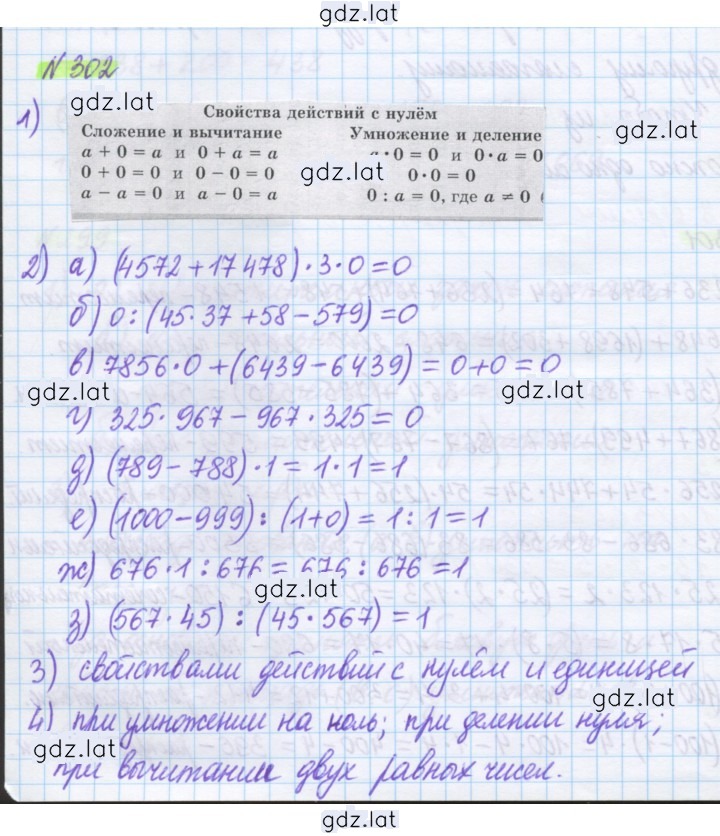 gdz.lat
N 302
gdz.lat
1)
Свойства действий с нулём
Сложение и вычитание Умножение и деление
a + 0 = a и 0 + a = a · 0 = 0 и 0 · a = 0
0 + 0 = 0 и 0 − 0 = 0 gdz.lat 0 · 0 = 0
a − a = 0 и a − 0 = a 0 : a = 0, где a ≠ 0 (
2) а) (4572 + 17478) · 3 · 0 = 0
б) 0 : (45 · 37 + 58 − 579) = 0
в) 7856 · 0 + (6439 − 6439) = 0 + 0 = 0
gdz.lat gdz.lat
г) 325 · 967 − 967 · 325 = 0
д) (789 − 788) · 1 = 1 · 1 = 1
е) (1000 − 999) : (1 + 0) = 1 : 1 = 1
ж) 676 · 1 : 676 = 676 : 676 = 1
gdz.lat
з) (567 · 45) : (45 · 567) = 1
3) свойствами действий с нулём и единицей
gdz.lat
4) при умножении на ноль; при делении нуля;
gdz.lat
при вычитании двух равных чисел.
gdz.lat